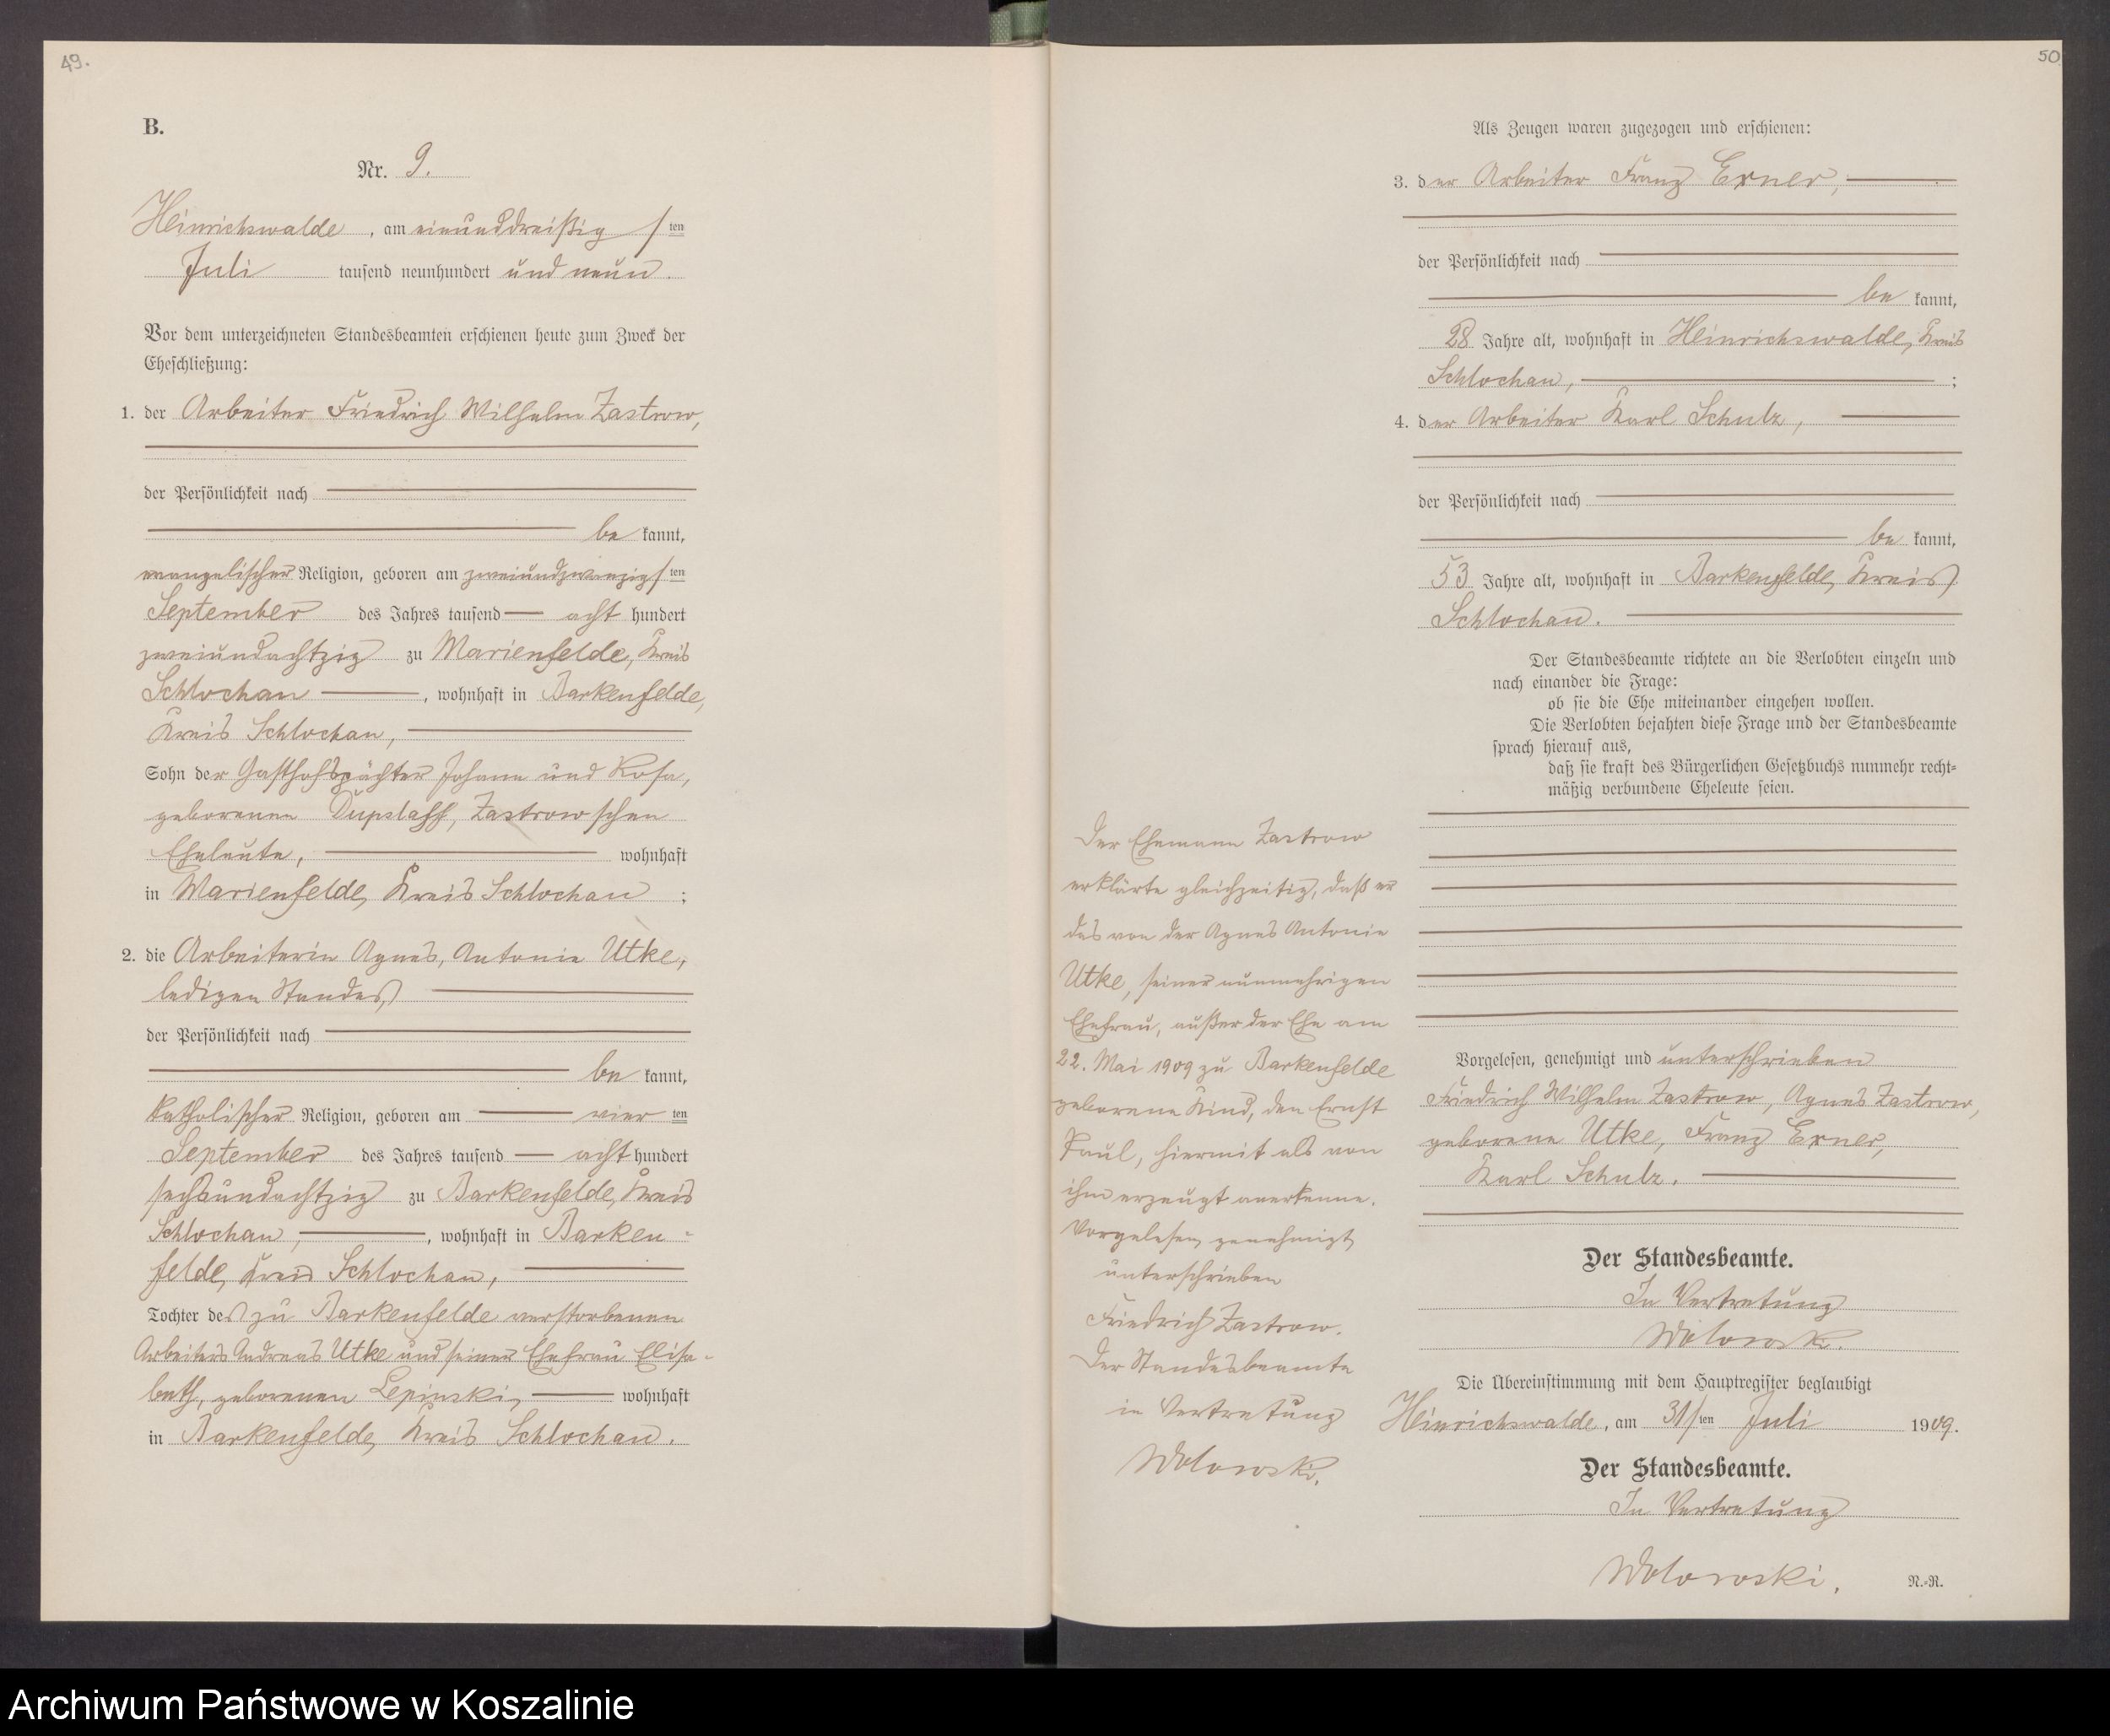 49.
B.
Nr. 9.
Heinrichswalde, am einunddreißigsten
Juli tausend neunhundert und neun.
Vor dem unterzeichneten Standesbeamten erschienen heute zum Zweck der
Eheschließung:
1. der Arbeiter Friedrich Wilhelm Zastrow,
der Persönlichkeit nach
be kannt,
evangelischer Religion, geboren am zweiundzwanzigsten
September des Jahres tausend acht hundert
zweiundachtzig zu Marienfelde, Kreis
Schlochau, wohnhaft in Barkenfelde,
Kreis Schlochau,
Sohn der Gasthofspächter Johann und Rosa,
geborenen Dupslaff, Zastrowschen
Eheleute, wohnhaft
in Marienfelde, Kreis Schlochau;
2. die Arbeiterin Agnes, Antonie Utke,
ledigen Standes
der Persönlichkeit nach
be kannt,
katholischer Religion, geboren am vierten
September des Jahres tausend acht hundert
sechsundachtzig zu Barkenfelde, Kreis
Schlochau, wohnhaft in Barken-
felde, Kreis Schlochau,
Tochter des zu Barkenfelde verstorbenen
Arbeiters Andreas Utke und seiner Ehefrau Elisa-
beth, geborenen Lepinski, wohnhaft
in Barkenfelde, Kreis Schlochau.
50.
Als Zeugen waren zugezogen und erschienen:
3. der Arbeiter Franz Exner,
der Persönlichkeit nach
be kannt,
28 Jahre alt, wohnhaft in Heinrichswalde, Kreis
Schlochau,;
4. der Arbeiter Karl Schulz,
der Persönlichkeit nach
be kannt,
53 Jahre alt, wohnhaft in Barkenfelde, Kreis
Schlochau.
Der Standesbeamte richtete an die Verlobten einzeln und
nach einander die Frage:
ob sie die Ehe miteinander eingehen wollen.
Die Verlobten bejahten diese Frage und der Standesbeamte
sprach hierauf aus,
daß sie kraft des Bürgerlichen Gesetzbuchs nunmehr recht-
mäßig verbundene Eheleute seien.
Der Ehemann Zastrow
erklärte gleichzeitig, daß er
das von der Agnes Antonie
Utke, seiner nunmehrigen
Ehefrau, außer der Ehe am
22. Mai 1909 zu Barkenfelde
geborene Kind, den Ernst
Paul, hiermit als von
ihm erzeugt anerkenne.
Vorgelesen, genehmigt,
unterschrieben
Friedrich Zastrow.
Der Standesbeamte
in Vertretung
Wolowski.
Vorgelesen, genehmigt und unterschrieben
Friedrich Wilhelm Zastrow, Agnes Zastrow,
geborene Utke, Franz Exner,
Karl Schulz.
Der Standesbeamte.
In Vertretung
Wolowski.
Die Übereinstimmung mit dem Hauptregister beglaubigt
Heinrichswalde, am 31sten Juli 1909.
Der Standesbeamte.
In Vertretung
Wolowski.
N.-R.
Archiwum Państwowe w Koszalinie